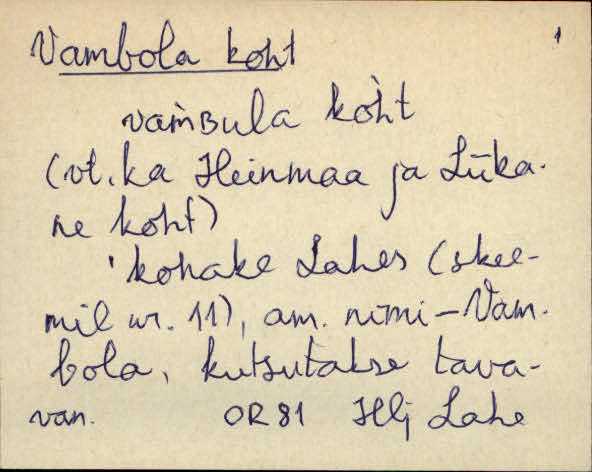 Vambola koht 1
vam̀ʙula kòht
(vt. ka Heinmaa ja Liika-
ne koht)
'kohake Lahes (skee-
mil nr. 11), am. nimi - Vam-
bola, kutsutakse tava-
van. OR 81 Hlj Lahe